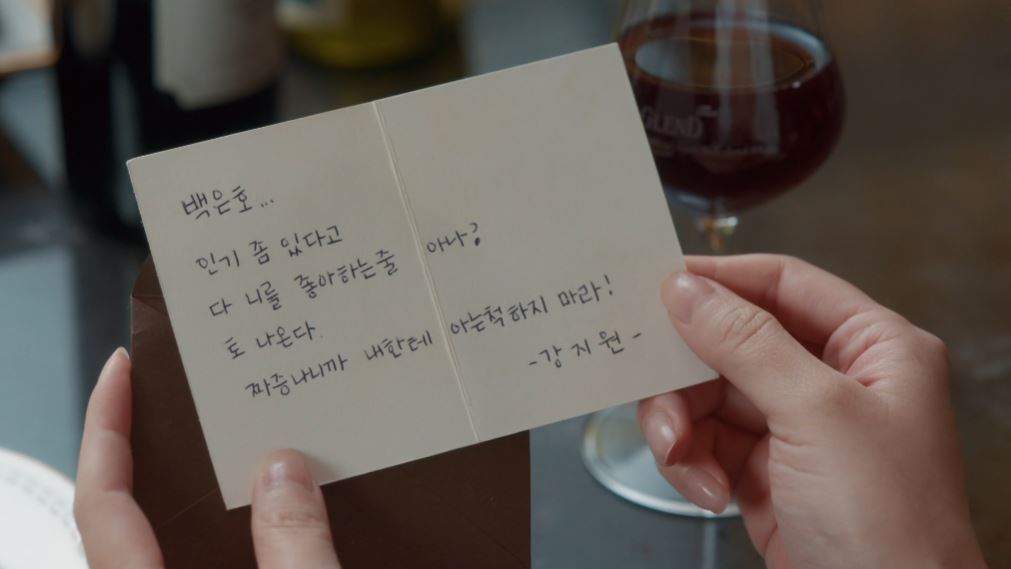 백은호...
인기 좀 있다고
다 니를 좋아하는줄 아나?
토 나온다.
짜증나니까 내한테 아는척하지 마라!
-강지원-
GLEND